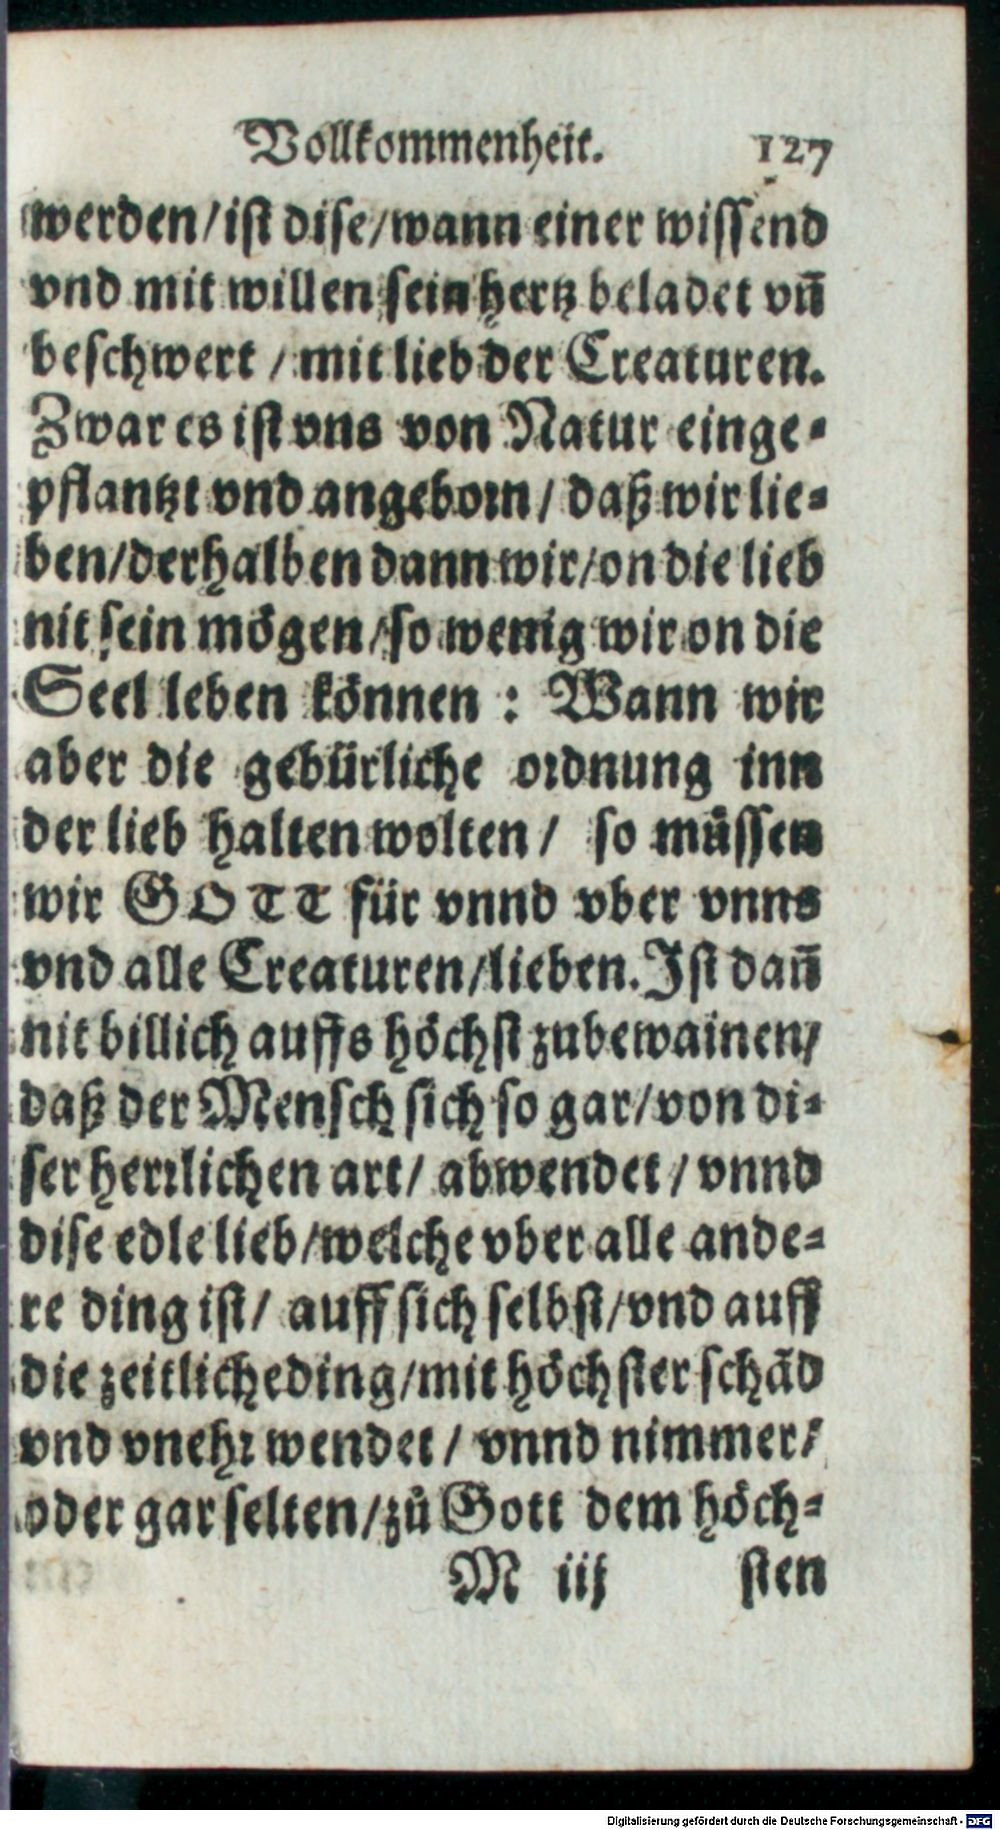 Vollkommenheit. 127
werden/ist dise/wann einer wissend
vnd mit willen sein hertz beladet vñ
beschwert / mit lieb der Creaturen.
Zwar es ist vns von Natur einge-
pflantzt vnd angeborn / daß wir lie-
ben/derhalben dann wir/on die lieb
nit sein mögen/so wenig wir on die
Seel leben können : Wann wir
aber die gebürliche ordnung inn
der lieb halten wolten / so müssen
wir GOTT für vnnd vber vnns
vnd alle Creaturen/lieben. Ist dañ
nit billich auffs höchst zubewainen/
daß der Mensch sich so gar/von di-
ser herrlichen art/ abwendet / vnnd
dise edle lieb/welche vber alle ande-
re ding ist/ auff sich selbst/vnd auff
die zeitliche ding/mit höchster schãd
vnd vnehr wendet / vnnd nimmer/
oder gar selten/zů Gott dem höch-
M iij sten
Digitalisierung gefördert durch die Deutsche Forschungsgemeinschaft - DFG